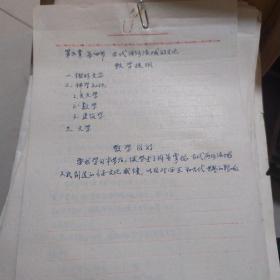 第五章 第四节 古代两河流域的文化
教学提纲
一、楔形文字
二、科学知识
1、天文学
2、数学
3、建筑学
三、文学
教学目的
要求学习本节后，使学生了解并掌握古代两河流域
人民创造的文化成就，以及对西亚和古代世界的影响